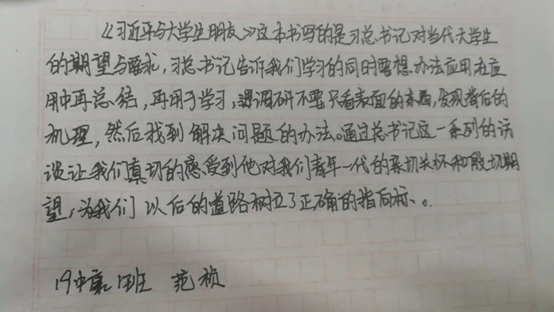 《习近平与大学生朋友》这本书写的是习总书记对当代大学生
的期望与要求，习总书记告诉我们学习的同时要想办法应用在应
用中再总结，再用于学习，调研不要只看表面的东西，发现背后的
机理，然后找到解决问题的办法。通过总书记这一系列的话
谈让我们真切的感受到他对我们青年一代的亲切关怀和殷切期
望，为我们以后的道路树立了正确的指向标、。
19中 班 范